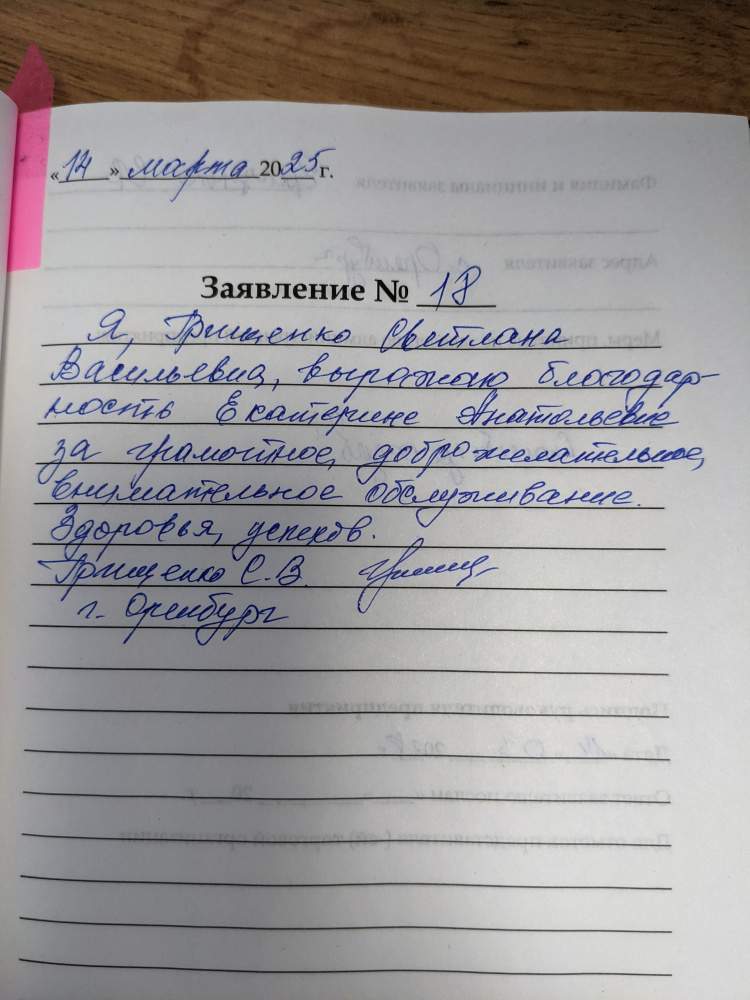 «14» марта 2025 г.
Заявление № 18
Я, Грищенко Светлана
Васильевна, выражаю благодар-
ность Екатерине Анатольевне
за грамотное, доброжелательное,
внимательное обслуживание.
Здоровья, успехов.
Грищенко С.В.
г. Оренбург